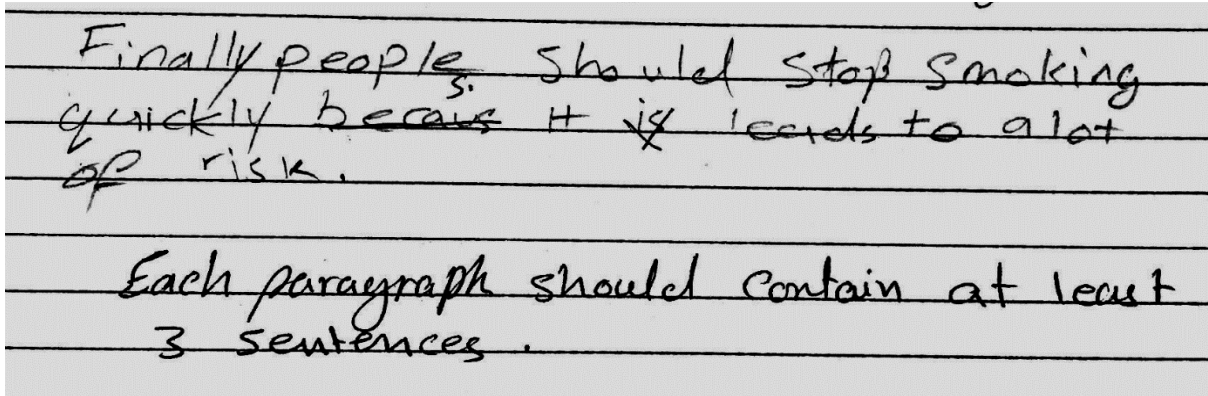 Finally peoples. should stop smoking
quickly becaus it is leads to a lot
of risk.
Each paragraph should contain at least
3 sentences.